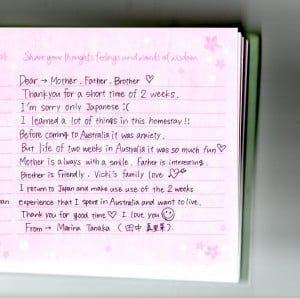 Share your thoughts feelings and words of wisdom
Dear → Mother. Father. Brother ♡
Thankyou for a short time of 2 weeks.
I'm sorry only Japanese :(
I learned a lot of things in this homestay!!
Before coming to Australia it was anxiety.
But life of two weeks in Australia it was so much fun ♡
Mother is always with a smile. Father is interesting.
Brother is friendly. Vicki's family love ♡
I return to Japan and make use use of the 2 weeks
experience that I spent in Australia and want to live.
Thank you for good time ♡ I love you ☺
From → Marina Tanaka (田中 真里菜)